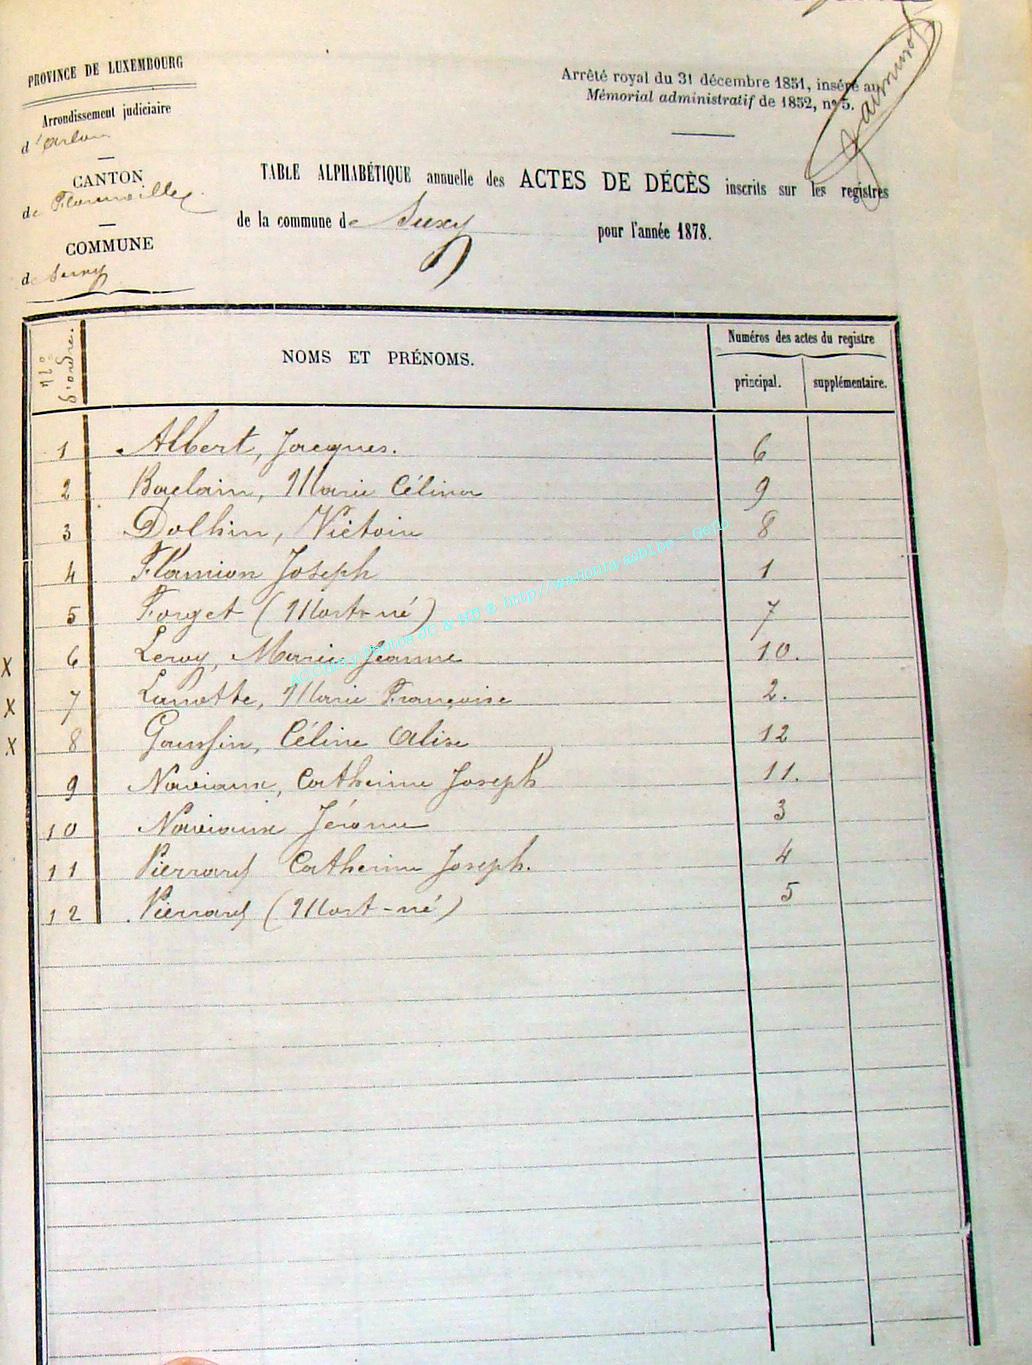 PROVINCE DE LUXEMBOURG
Arrondissement judiciaire
d'Arlon
CANTON
de Florenville
COMMUNE
de Suxy
Arrêté royal du 31 décembre 1851, inséré au
Mémorial administratif de 1852, n° 5.
TABLE ALPHABÉTIQUE annuelle des ACTES DE DÉCÈS inscrits sur les registres
de la commune de Suxy pour l'année 1878.
N° d'ordre. NOMS ET PRÉNOMS. Numéros des actes du registre
principal. supplémentaire.
1 Albert, Jacques. 6
2 Baclain, Marie Célina 9
3 Dolhin, Victoire 8
4 Flamion Joseph 1
5 Forget (Mort-né) 7
X 6 Leroy, Marie Jeanne 10.
X 7 Lamotte, Marie Françoise 2.
X 8 Goussin, Céline Alise 12
9 Naviaux, Catherine Joseph 11.
10 Naviaux Jérome 3
11 Pierrard Catherine Joseph. 4
12 Pierrard (Mort-né) 5